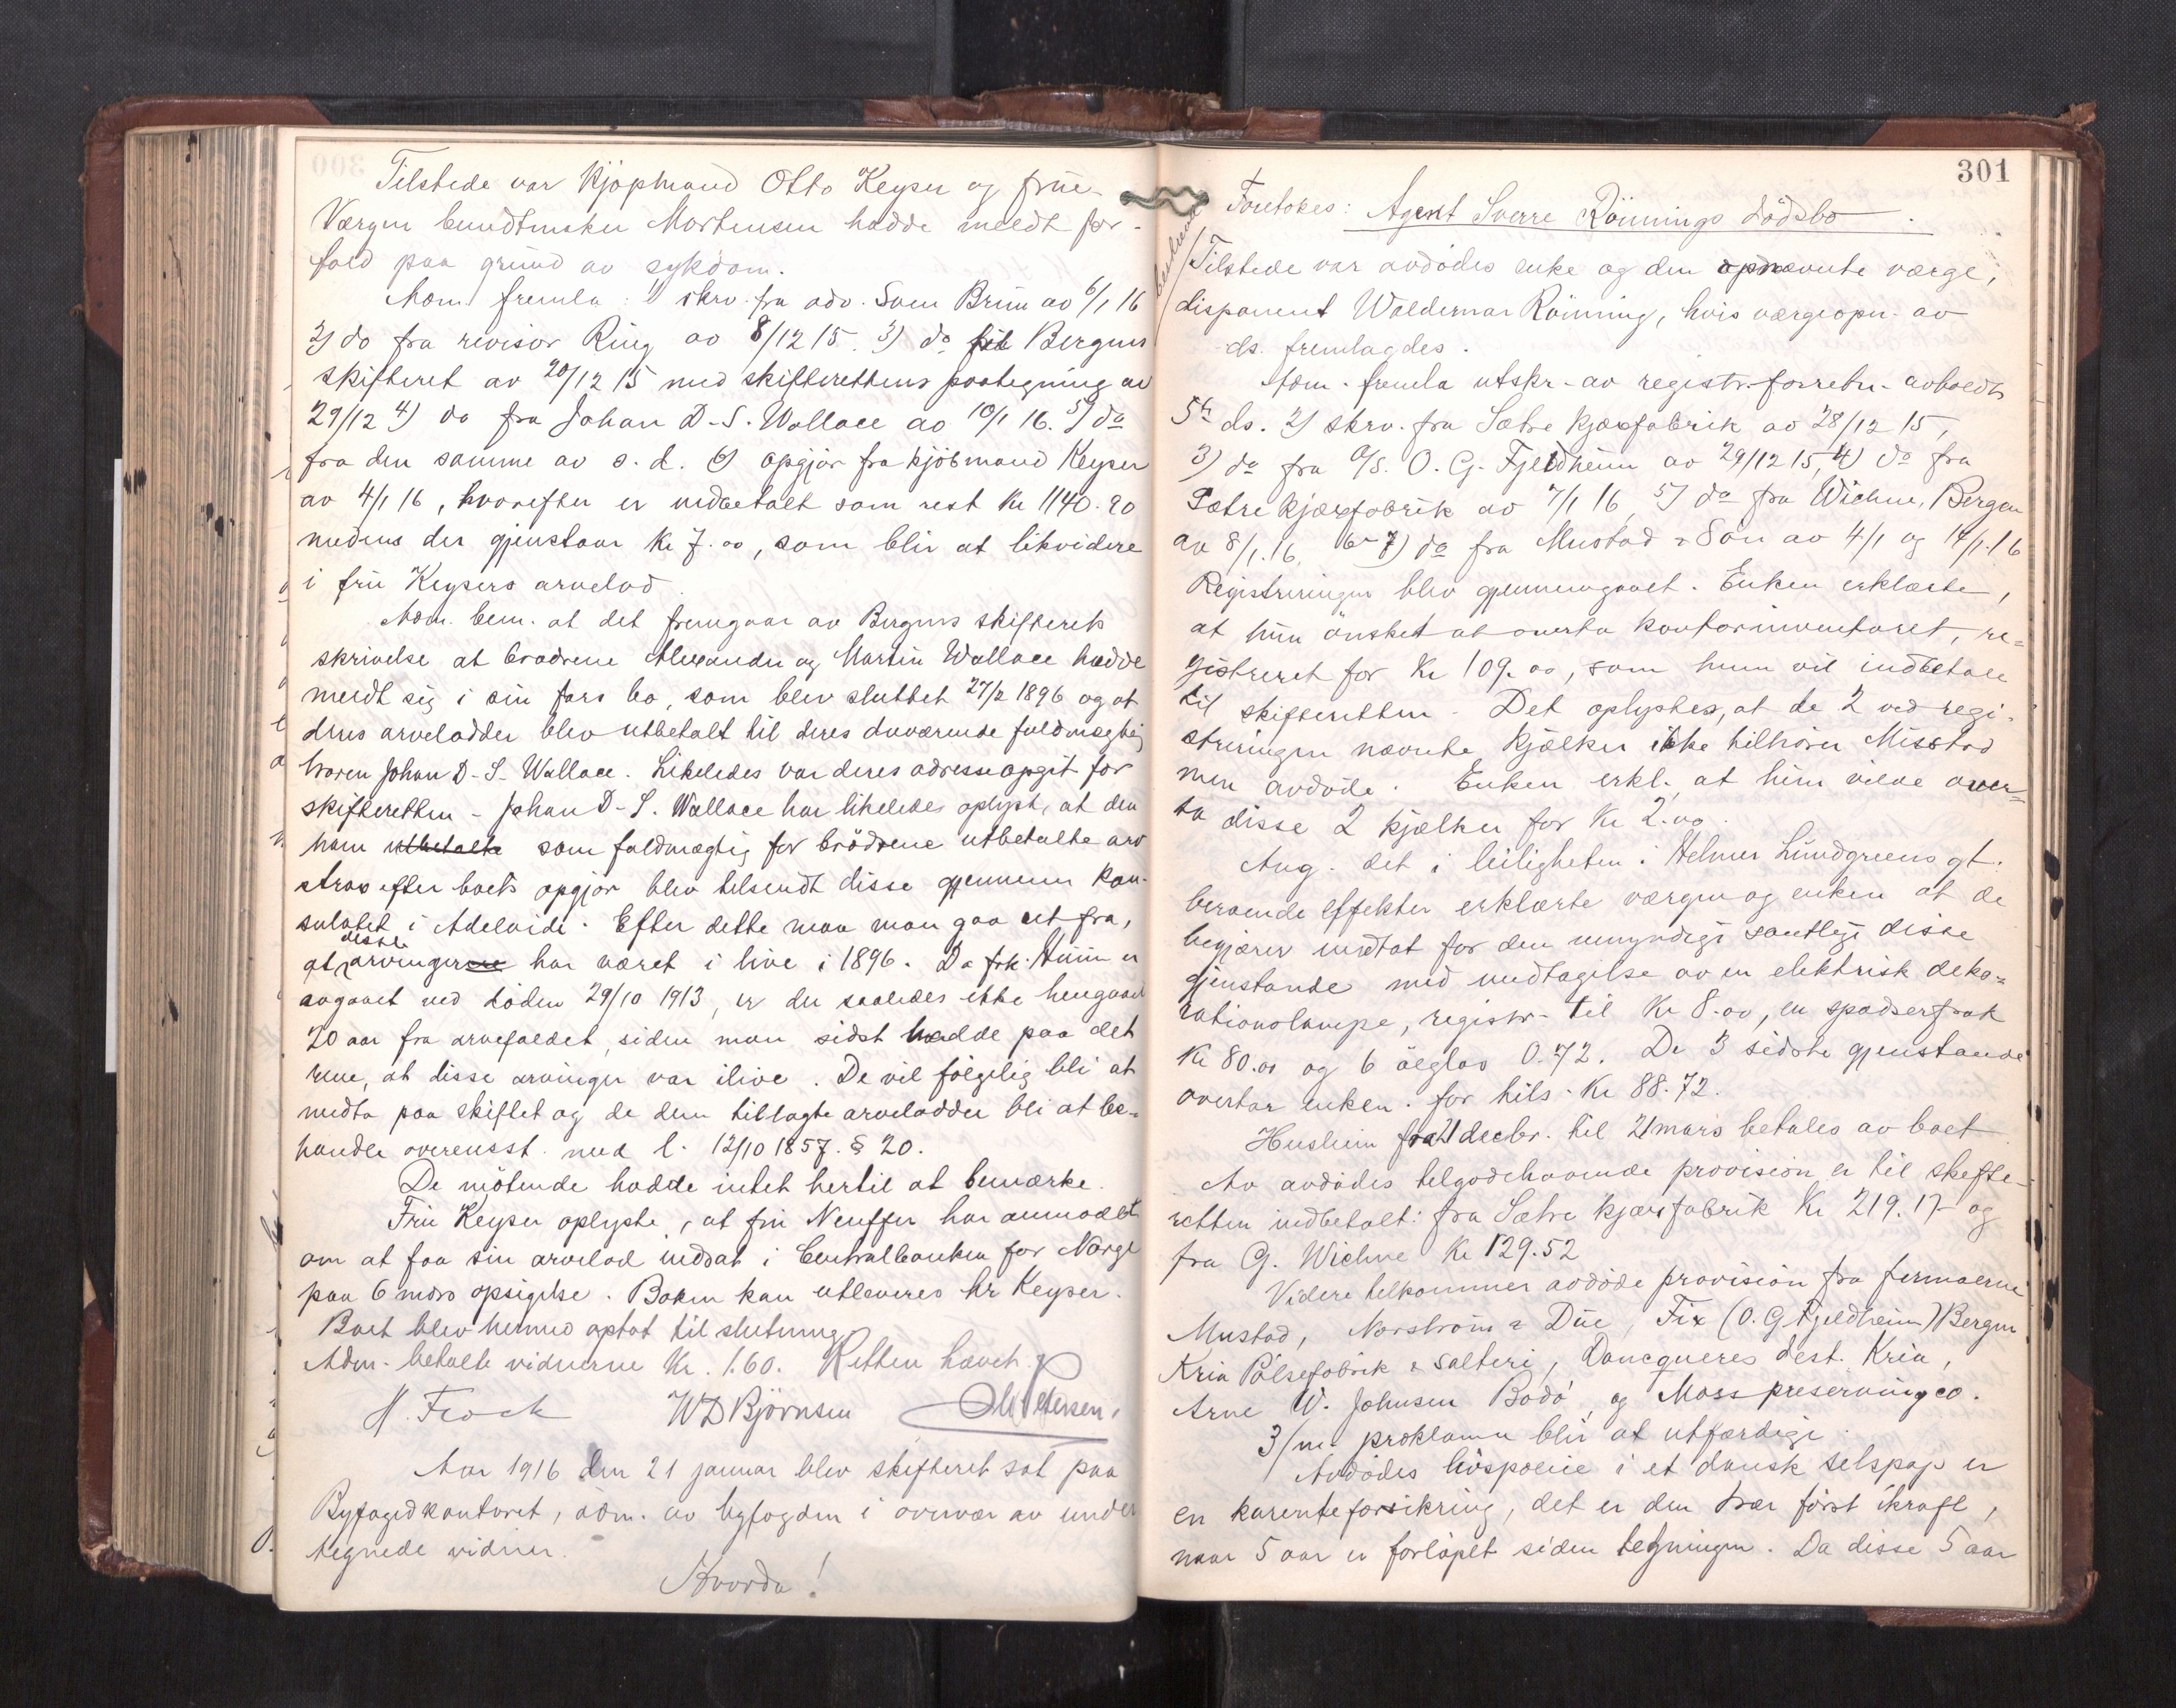 Tilstede var kjøpmand Otto Keyser og frue.
Værgen bundtmaker Mortensen hadde meldt for-
fald paa grund av sykdom.
Adm. fremla: 1) skrv. fra adv. Bruu av 6/1 16
2) do fra revisor Ring av 8/12 15. 3) do fra Bergens
skifteret av 20/12 15 med skifterettens paategning av
29/12 4) do fra Johan D. S. Wallace av 10/1 16. 5) do
fra den samme av s. d. 6) opgjør fra kjøbmand Keyser
av 4/1 16, hvorefter er indbetalt som rest kr 1140.90
medens der gjenstaar kr 7.00, som blir at likvidere
i fru Keysers arvelod.
Adm. bem. at det fremgaar av Bergens skifterets
skrivelse at brødrene Alexander og Martin Wallace hadde
meldt sig i sin fars bo, som blev sluttet 27/2 1896 og at
deres arvelodder blev utbetalt til deres daværende fuldmægtig
broren Johan D. S. Wallace. Likeledes var deres adresse opgit for
skifteretten. Johan D. S. Wallace har likeledes oplyst, at den
ham utbetalte som fuldmægtig for brødrene utbetalte arv
straks efter boets opgjør blev tilsendt disse gjennem kon-
sulatet i Adelaide. Efter dette maa man gaa ut fra,
at disse arvingerne har været i live i 1896. Da frk.
avgaaet ved døden 29/10 1913, er der saaledes ikke hengaaet
20 aar fra arvefaldet, siden man sidst hadde paa det
rene, at disse arvinger var ilive. De vil følgelig bli at
medta paa skiftet og de dem tillagte arvelodder bli at be-
handle overensst. med l. 12/10 1857 § 20.
De møtende hadde intet hertil at bemærke.
Fru Keyser oplyste, at fru Neuffer har anmodet
om at faa sin arvelod indsat i Centralbanken for Norge
paa 6 mdrs opsigelse. Boken kan utleveres hr Keyser.
Boet blev hermed optat til slutning.
Adm. betalte vidnerne kr. 1.60. Retten hævet.
H. Frock WD Björnsen Petersen
Aar 1916 den 21 januar blev skifteret sat paa
Byfogdkontoret, adm. av byfogden i overvær av under
tegnede vidner.
Hvorda!
301
Foretokes: Agent Sverre Rönnings dödsbo.
Tilstede var avdødes enke og den opnævnte værge,
disponent Waldemar Rönning, hvis værgeopn. av
ds. fremlagdes.
Adm. fremla utskr. av registr.forretn. avholdt
5te ds. 2) skrv. fra Sætre kjæxfabrik av 28/12 15,
3) do fra A/S. O. G. Fjeldheim av 29/12 15, 4) do fra
Sætre kjæxfabrik av 7/1 16, 5) do fra Wiehne, Bergen
av 8/1.16. 6 - 7) do fra Mustad & Søn av 4/1 og 14/1.16
Registreringen blev gjennemgaaet. Enken erklærte,
at hun ønsket at overta kontorinventaret, re=
gistreret for kr 109.00, som hun vil indbetale
til skifteretten. Det oplystes, at de 2 ved regi-
streringen nævnte kjælker ikke tilhører Misstad
men avdøde. Enken erkl., at hun vilde over=
ta disse 2 kjælker for kr 2.00.
Ang. det i leiligheten i Helmer Lundgreens gt.
beroende effekter erklærte værgen og enken at de
begjærer undtat for den umyndige samtlige disse
gjenstande med undtagelse av en elektrisk deko=
rationslampe, registr. til kr 8.00, en spadserfrak
kr 80.00 og 6 ølglas 0.72. De 3 sidste gjenstande
overtar enken. for tils. kr 88.72.
Husleien fra 21 decbr. til 21 mars betales av boet.
Av avdødes tilgodehavende provision er til skifte-
retten indbetalt: fra Sætre kjæxfabrik kr 219.17 og
fra G. Wiehne kr 129.52
Videre tilkommer avdøde provision fra firmaerne
Mustad, Norström & Due, Fix (O. G Fjeldheim) Bergen
Kria Pølsefabrik & salteri, Dancqueres dest. Kria,
Arne W. Johnsen Bodø, og Moss preserving co.
3/m. proklama blir at utfærdige.
Avdødes livspolice i et dansk selskap er
en karenteforsikring, det er den træer först ikraft,
naar 5 aar er forløpet siden tegningen. Da disse 5 aar